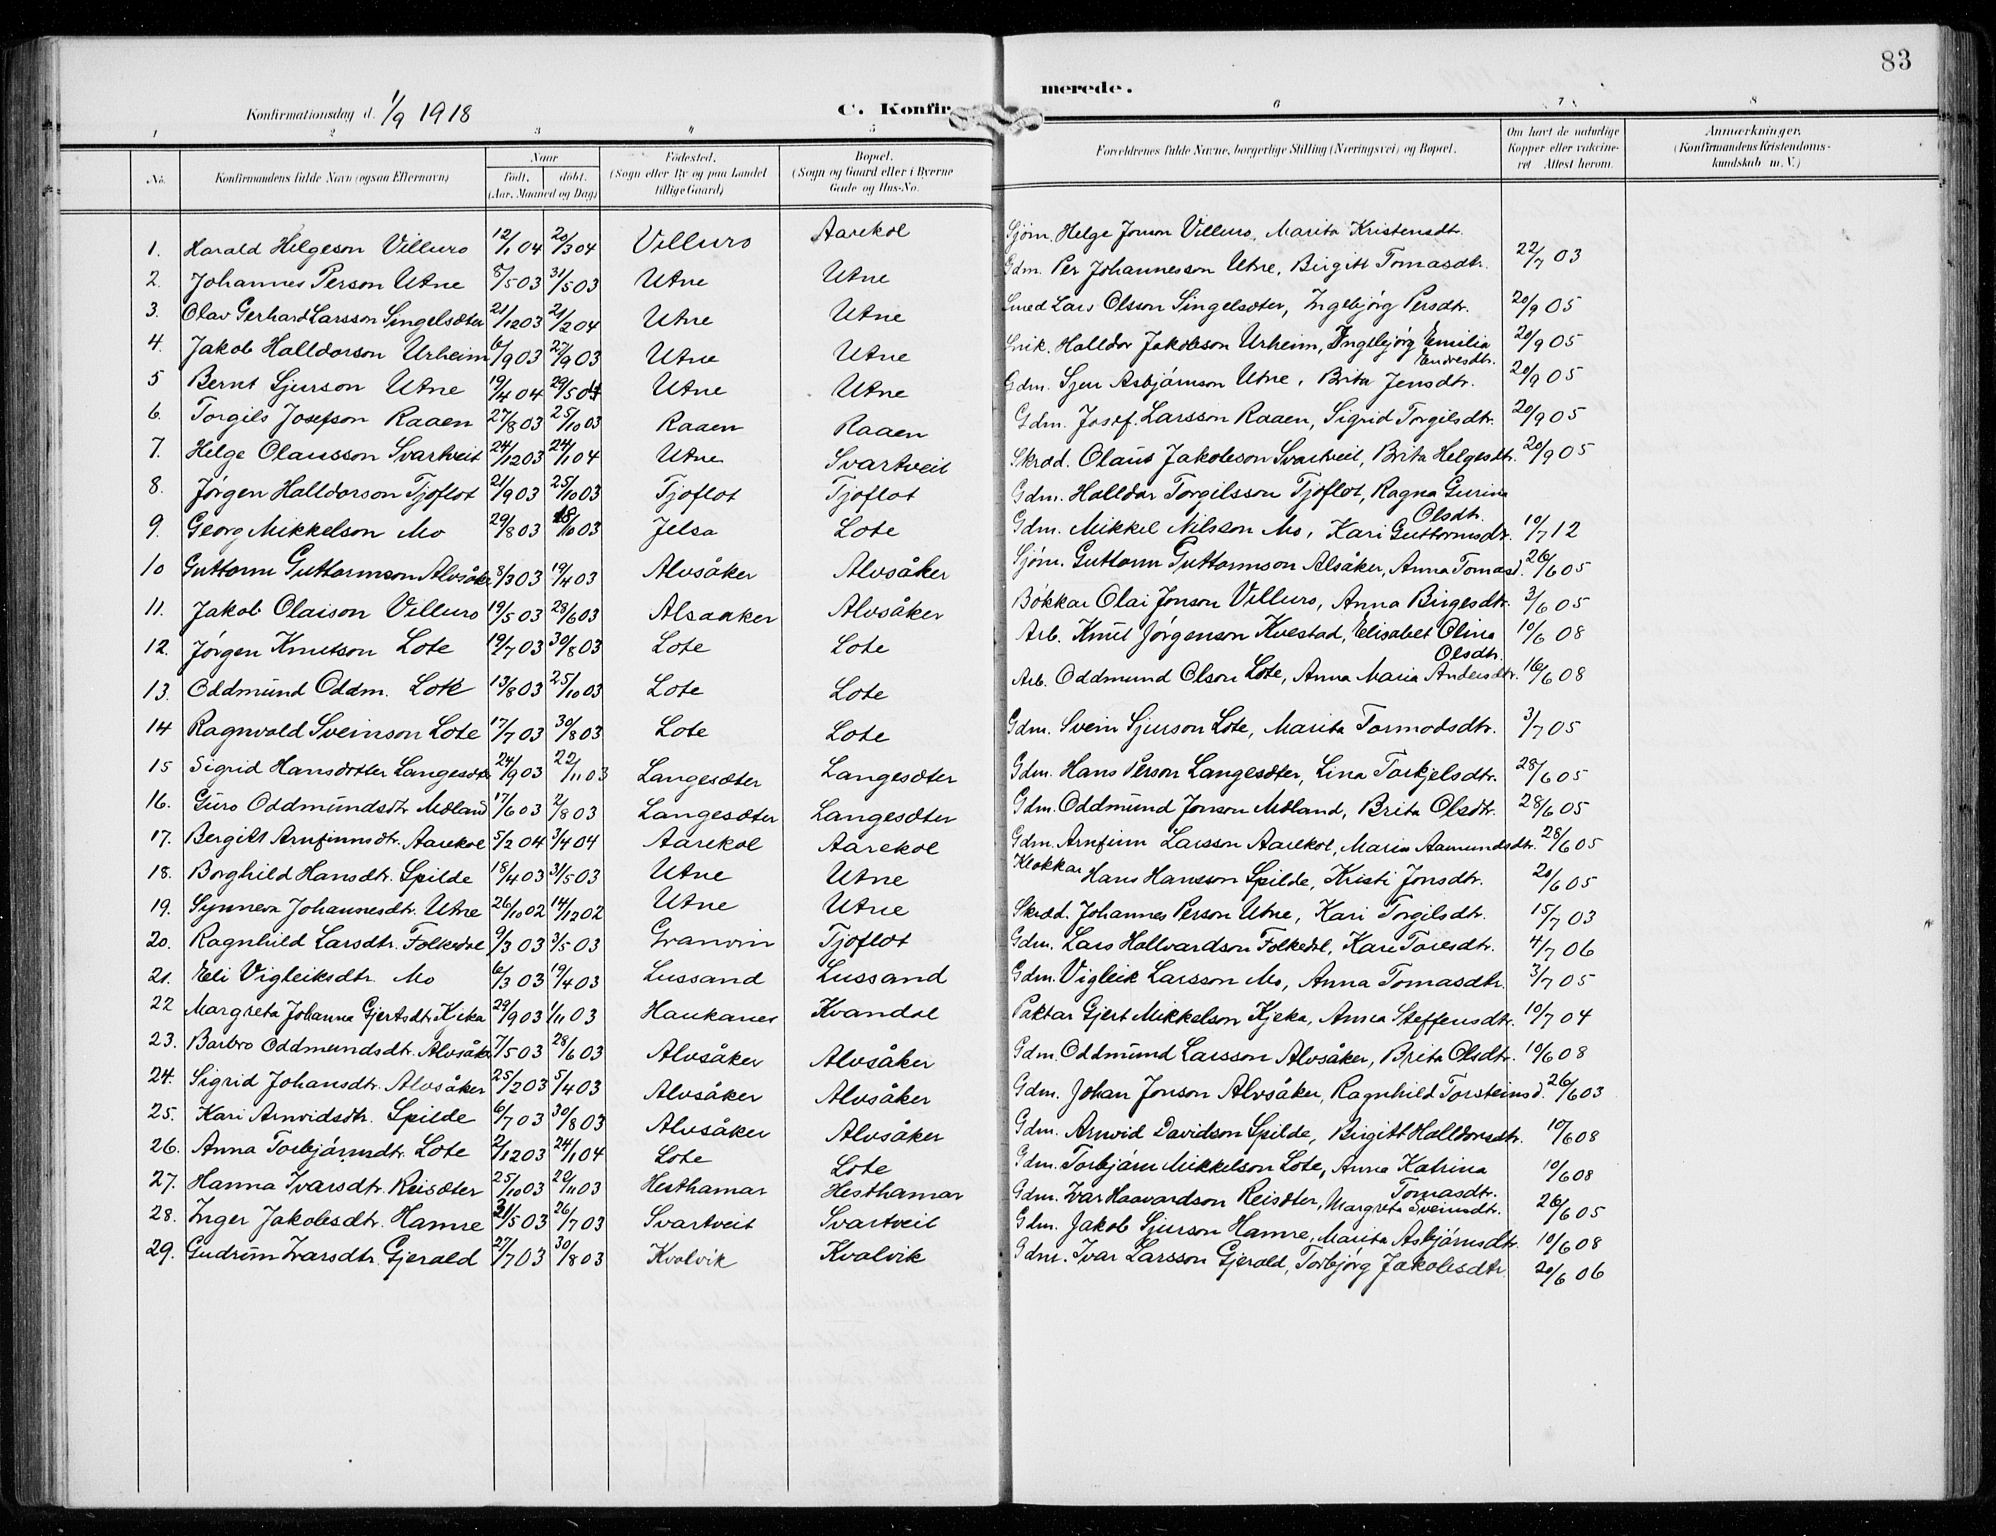 83
Konfirmationsdag d. 1/9 1918
C. Konfirmerede.
1 2 3 4 5 6 7 8
No. Konfirmandens fulde Navn (ogsaa Efternavn) Naar født, døbt. (Aar, Maaned og Dag) Fødested. (Sogn eller By og paa Landet tillige Gaard) Bopæl. (Sogn og Gaard eller i Byerne Gade og Hus-No. Forældrenes fulde Navne, borgerlige Stilling (Næringsvei) og Bopæl. Om havt de naturlige Kopper eller vaccineret. Attest herom. Anmærkninger. (Konfirmandens Kristendomskundskab m. V.)
1. Harald Helgeson Villuro 12/1 04 20/3 04 Villuro Aarekol Sjøm. Helge Jonson Villuro, Marita Kristensdtr.
2. Johannes Person Utne 8/5 03 31/5 03 Utne Utne Gdm. Per Johannesson Utne, Birgitt Tomasdtr. 22/7 03
3. Olav Gerhard Larsson Singelsæter 21/12 03 21/2 04 Utne Utne Smed Lars Olsson Singelsæter, Ingebjørg Persdtr. 20/9 05
4. Jakob Halldorson Urheim 6/9 03 27/9 03 Utne Utne Snik. Halldor Jakobson Urheim, Ingebjørg Emilia Endresdtr. 20/9 05
5 Bernt Sjurson Utne 19/4 04 29/5 04 Utne Utne Gdm. Sjur Asbjørnson Utne, Brita Jensdtr. 20/9 05
6. Torgils Josefson Raaen 27/8 03 25/10 03 Raaen Raaen Gdm. Josef Larsson Raaen, Sigrid Torgilsdtr. 20/9 05
7. Helge Olausson Svartveit 24/12 03 24/1 04 Utne Svartveit Skræd. Olaus Jakobson Svartveit, Brita Helgesdtr. 20/9 05
8. Jørgen Halldorson Tjoflot 21/9 03 25/10 03 Tjoflot Tjoflot Gdm. Halldor Torgilsson Tjoflot, Ragna Gurina Olsdtr.
9. Georg Mikkelson Mo 29/8 03 18/10 03 Jelsa Lote Gdm. Mikkel Nilsson Mo, Kari Guttormsdtr. 10/7 12
10 Guttorm Guttormson Alvsåker 8/3 03 19/4 03 Alvsåker Alvsåker Sjøm. Guttorm Guttormson Alsåker, Anna Tomasd. 26/6 05
11. Jakob Olaison Villuro 19/5 03 28/6 03 Alsaaker Alvsåker Bökkar Olai Jonson Villuro, Anna Birgesdtr. 3/6 05
12. Jørgen Knutson Lote 19/7 03 30/8 03 Lote Lote Arb. Knut Jørgenson Kvestad, Elisabet Olina Olsdtr. 10/6 08
13. Oddmund Oddm. Lote 13/8 03 25/10 03 Lote Lote Arb. Oddmund Olson Lote, Anna Maria Andersdtr. 16/6 08
14 Ragnvald Sveinson Lote 17/7 03 30/8 03 Lote Lote Gdm. Svein Sjurson Lote, Marita Tormodsdtr. 3/7 05
15 Sigrid Hansdotter Langesæter 24/9 03 22/11 03 Langesæter Langesæter Gdm. Hans Person Langesæter, Lina Torkjelsdtr. 28/6 05
16. Guro Oddmundsdtr Mæland 17/6 03 2/8 03 Langesæter Langesæter Gdm. Oddmund Jonson Mæland, Brita Olsdtr. 28/6 05
17. Bergitt Arnfinnsdtr. Aarekol 5/2 04 3/4 04 Aarekol Aarekol Gdm. Arnfinn Larsson Aarekol, Maria Aamundsdtr. 28/6 05
18. Borghild Hansdtr. Spilde 18/4 03 31/5 03 Utne Utne Klokkar Hans Hansson Spilde, Kristi Jonsdtr. 20/6 05
19. Synneva Johannesdtr. Utne 26/10 02 14/12 02 Utne Utne Skræd. Johannes Person Utne, Kari Torgilsdtr. 15/7 03
20. Ragnhild Larsdtr. Folkedal 9/3 03 3/5 03 Granvin Tjoflot Gdm. Lars Hallvardson Folkedal, Kari Toresdtr. 4/7 06
21. Eli Vigleiksdtr. Mo 6/3 03 19/4 03 Lussand Lussand Gdm. Vigleik Larsson Mo, Anna Tomasdtr. 3/7 05
22 Margreta Johanna Gjertsdtr. Kjeka 29/9 03 1/11 03 Haukanes Kvandal Paktar Gjert Mikkelson Kjeka, Anna Steffensdtr. 10/7 04
23. Barbro Oddmundsdtr. Alvsåker 7/5 03 28/6 03 Alvsåker Alvsåker Gdm. Oddmund Larsson Alvsåker, Brita Olsdtr. 10/6 08
24. Sigrid Johansdtr. Alvsåker 25/2 03 5/4 03 Alvsåker Alvsåker Gdm. Johan Jonson Alvsåker, Ragnhild Torsteinsd. 26/6 03
25. Kari Arnvidsdtr. Spilde 6/7 03 30/8 03 Alvsåker Alvsåker Gdm. Arnvid Davidson Spilde, Birgitt Halldorsdtr. 10/6 08
26. Anna Torbjørnsdtr. Lote 2/12 03 24/1 04 Lote Lote Gdm. Torbjørn Mikkelson Lote, Anna Katrina Tomasdtr. 10/6 08
27. Hanna Ivarsdtr. Reisæter 25/10 03 29/11 03 Hesthamar Hesthamar Gdm. Ivar Haavardson Reisæter, Margreta Sveinsdtr. 26/6 05
28. Inger Jakobsdtr. Hamre 31/5 03 26/7 03 Svartveit Svartveit Gdm. Jakob Sjurson Hamre, Marita Asbjørnsdtr. 10/6 08
29. Gudrun Ivarsdtr. Gjerald 27/7 03 30/8 03 Kvalvik Kvalvik Gdm. Ivar Larsson Gjerald, Torbjørg Jakobsdtr. 20/6 06